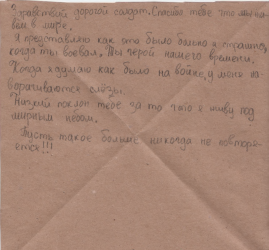 Здравствуй дорогой солдат. Спасибо тебе что мы живём в мире.
Я представляю как это было больно и страшно,
когда ты воевал. Ты герой нашего времени.
Когда я думаю как было на войне, у меня на-
варачиваются слёзы.
Низкий поклон тебе за то что я живу под
мирным небом.
Пусть такое больше никогда не повторя-
ется!!!